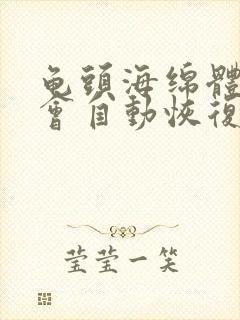 龟頭海绵體
會自動恢復
莹莹一笑